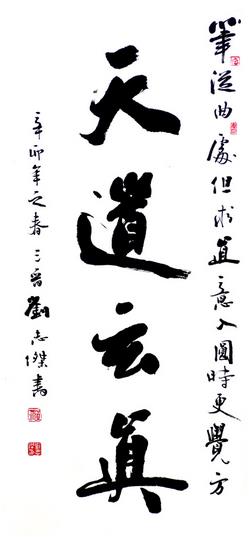 筆從曲處但求直意入圓時更覺方
天道玄真
辛卯年之春三晋劉志傑書